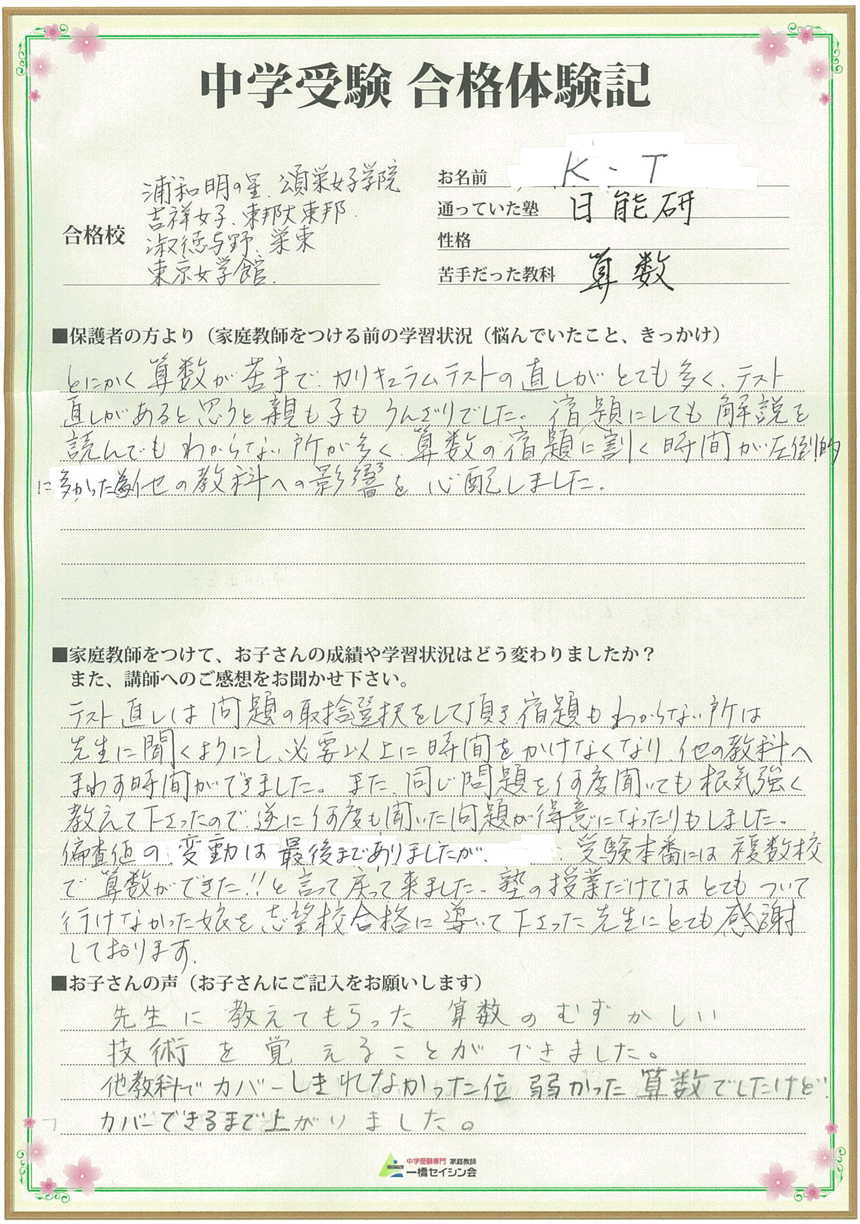 中学受験 合格体験記
合格校
浦和明の星、頌栄女子学院
吉祥女子、東邦大東邦
淑徳与野、栄東
東京女学館
お名前 K・T
通っていた塾 日能研
性格
苦手だった教科 算数
■保護者の方より（家庭教師をつける前の学習状況（悩んでいたこと、きっかけ）
とにかく算数が苦手で、カリキュラムテストの直しがとても多く、テスト
直しがあると思うと親も子もうんざりでした。宿題にしても解説を
読んでもわからない所が多く算数の宿題に割く時間が圧倒的
に多かった為、他の教科への影響を心配しました。
■家庭教師をつけて、お子さんの成績や学習状況はどう変わりましたか？
また、講師へのご感想をお聞かせ下さい。
テスト直しは問題の取捨選択をして頂き宿題もわからない所は
先生に聞くようにし、必要以上に時間をかけなくなり、他の教科へ
まわす時間ができました。また、同じ問題を何度聞いても根気強く
教えて下さったので、逆に何度も聞いた問題が得意になったりもしました。
偏差値の変動は最後までありましたが、受験本番には複数校
で算数ができた!!と言って戻って来ました。塾の授業だけではとてもついて
行けなかった娘を志望校合格に導いて下さった先生にとても感謝
しております。
■お子さんの声（お子さんにご記入をお願いします）
先生に教えてもらった算数のむずかしい
技術を覚えることができました。
他教科でカバーしきれなかった位弱かった算数でしたけど、
カバーできるまで上がりました。
中学受験専門 家庭教師
一橋セイシン会